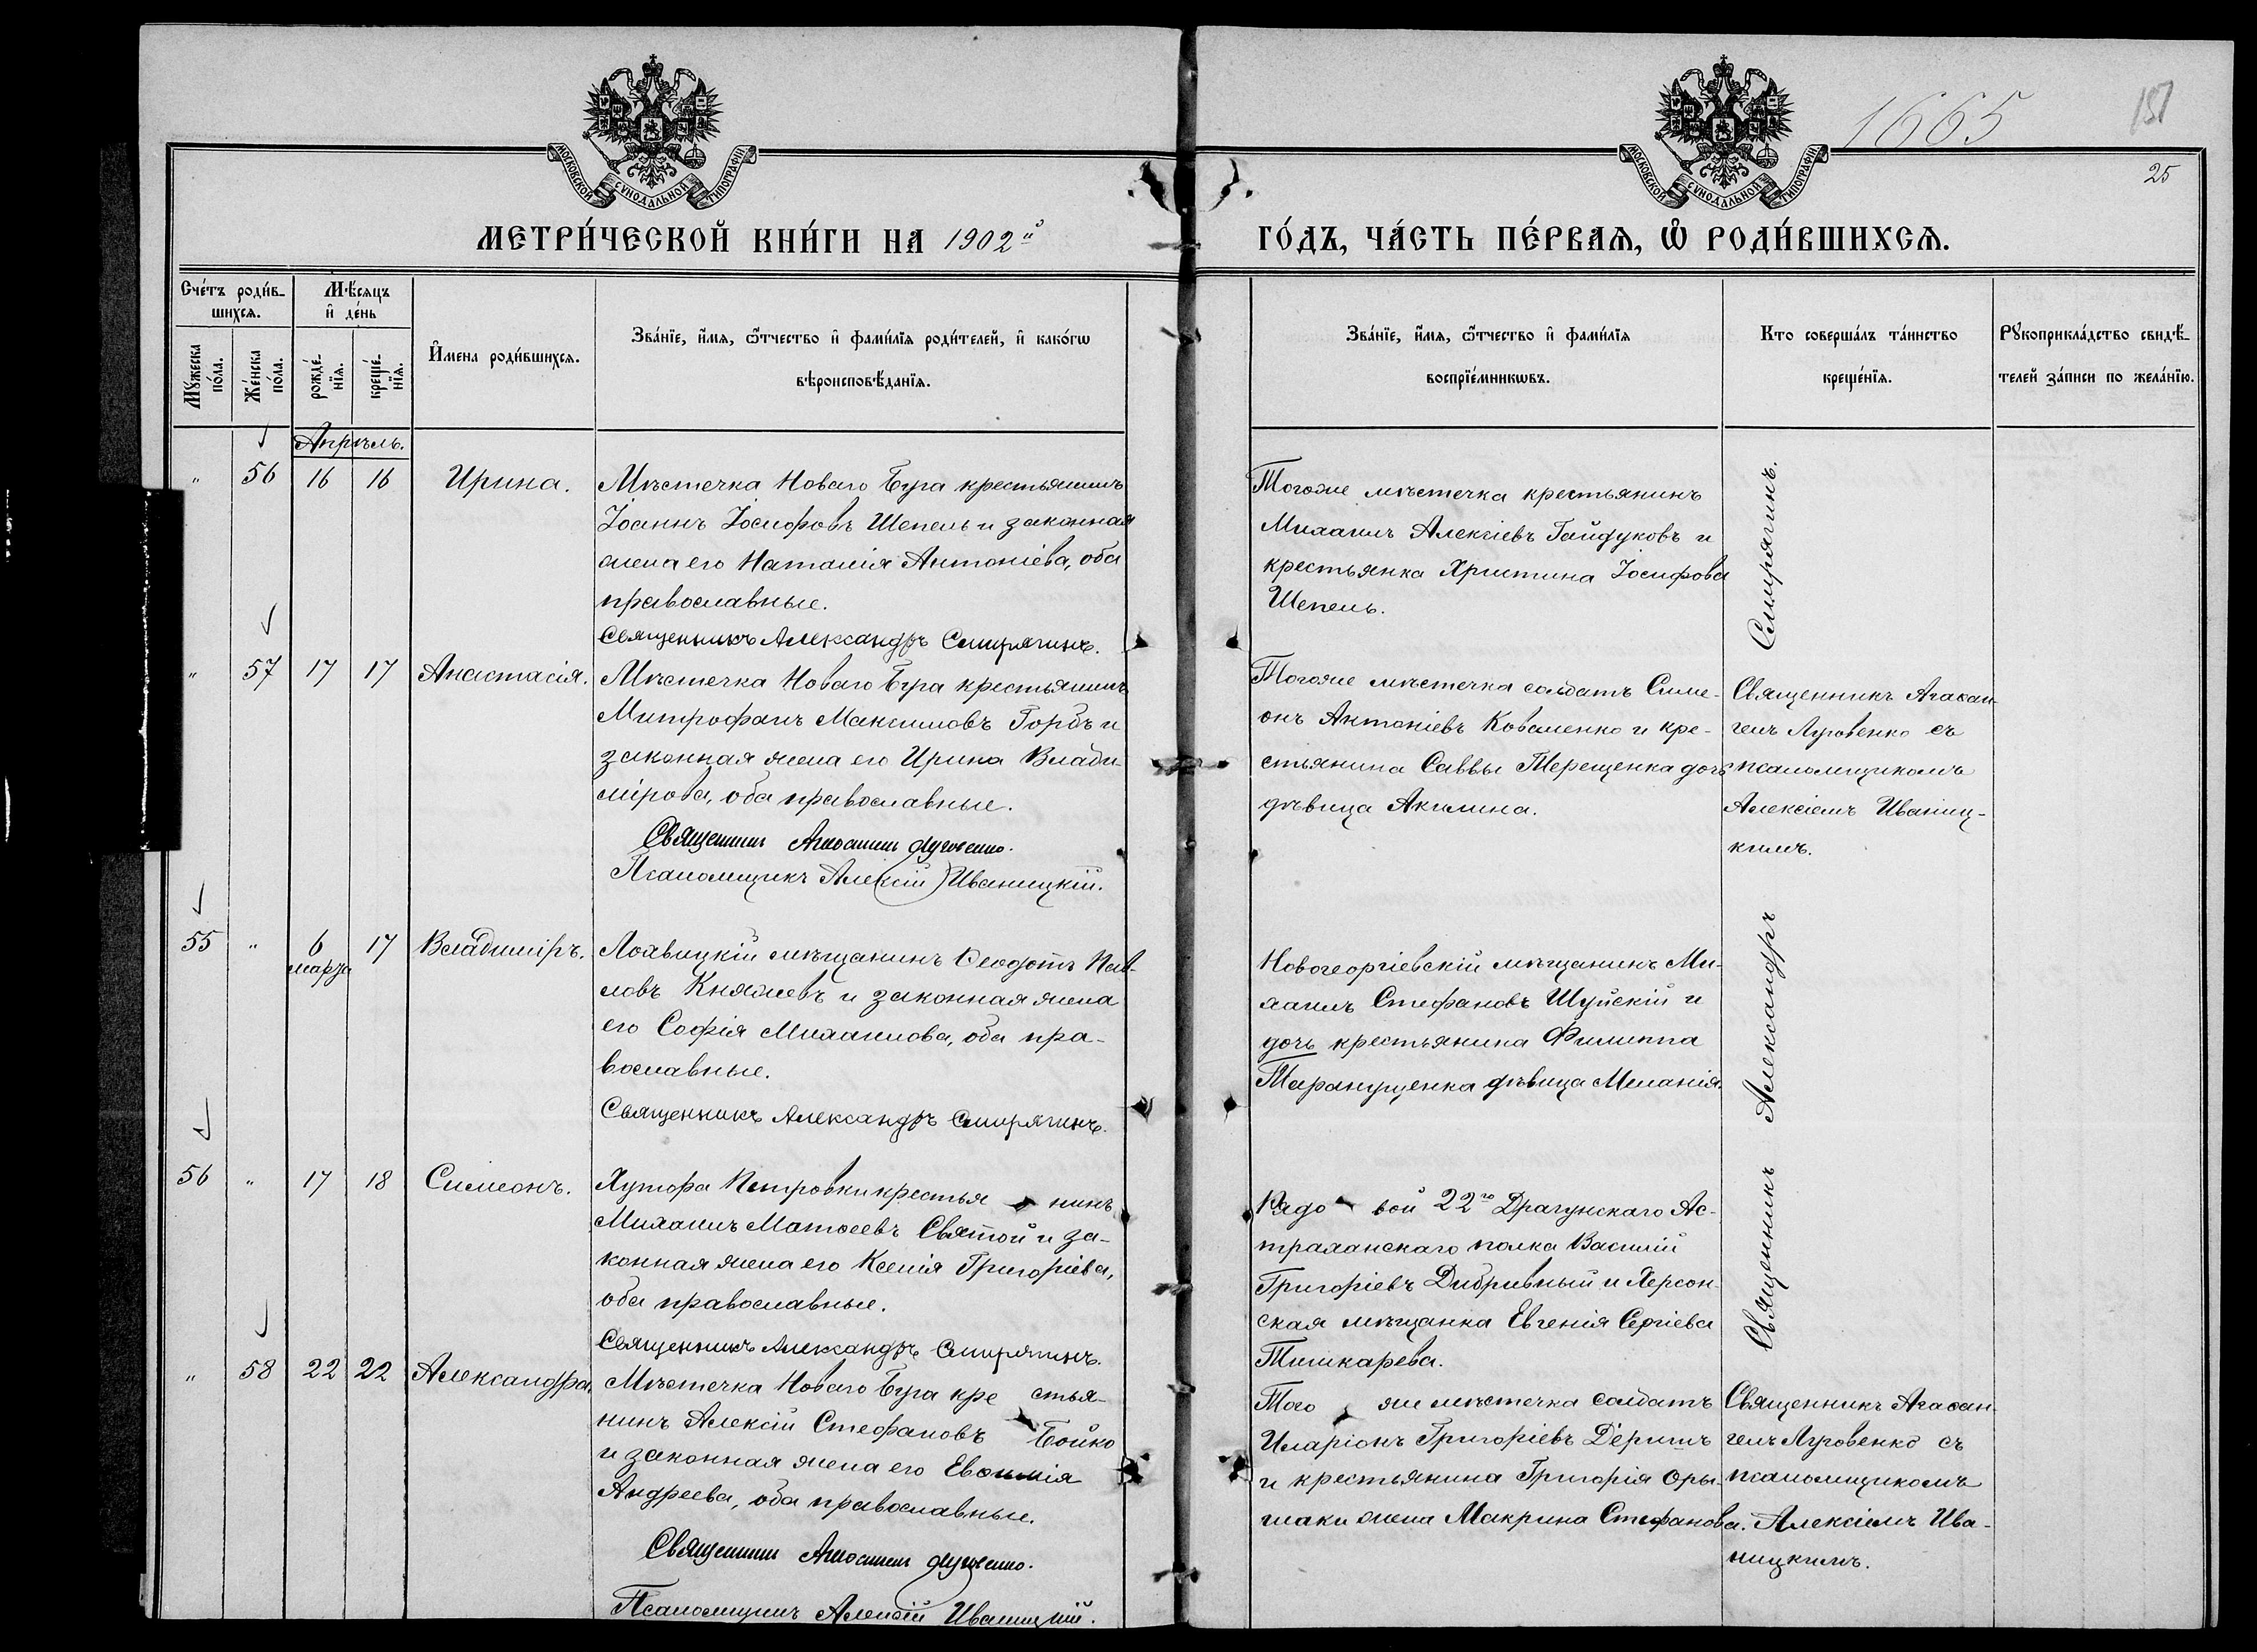 1665
151
25
МОСКОВСКОЙ СѴНОДАЛЬНОЙ ТИПОГРАФІИ
МОСКОВСКОЙ СѴНОДАЛЬНОЙ ТИПОГРАФІИ
МЕТРИ́ЧЕСКОЙ КНИ́ГИ НА 1902й
ГО́ДЪ, ЧА́СТЬ ПЕ́РВАѦ, Ѽ РОДИ́ВШИХСѦ.
Сче́тъ роди́в-
шихсѧ.
Мѣ́сѧцъ
и҆ де́нь
Мꙋ́жеска
по́ла.
Же́нска
по́ла.
рожде́-
нїѧ.
креще́-
нїѧ.
И҆мена роди́вшихсѧ.
Зва́нїе, и҆́мѧ, ѻ҆́тчество и҆ фами́лїѧ роди́телей, и҆ како́гѡ
вѣроисповѣ́данїѧ.
Зва́нїе, и҆́мѧ, ѻ҆́тчество и҆ фами́лїѧ
воспрїе́мникѡвъ.
Кто соверша́лъ та́инство
креще́нїѧ.
Рꙋкоприкла́дство свидѣ́-
телей за́писи по жела́нїю.
Апрѣль.
" 56 16 16 Ирина.
Мѣстечка Новаго Буга крестьянинъ
Іоаннъ Іосифовъ Шепель и законная
жена его Наталія Антоніева, оба
православные.
Священникъ Александръ Смирягинъ.
Тогоже мѣстечка крестьянинъ
Михаилъ Алексіевъ Гайдуковъ и
крестьянка Христина Іосифова
Шепель.
" 57 17 17 Анастасія.
Мѣстечка Новаго Буга крестьянинъ
Митрофанъ Максимовъ Горбъ и
законная жена его Ирина Влади-
мірова, оба православные.
Священникъ Агаѳангелъ Луговенко.
Псаломщикъ Алексій Иваницкій.
Тогоже мѣстечка солдатъ Симе-
онъ Антоніевъ Коваленко и кре-
стьянина Саввы Терещенка дочь
дѣвица Акилина.
Священникъ Агаѳан-
гелъ Луговенко съ
псаломщикомъ
Алексіемъ Иваниц-
кимъ.
55 " 6 марта 17 Владиміръ.
Лохвицкій мѣщанинъ Ѳеодотъ Пав-
ловъ Княжевъ и законная жена
его Софія Михаилова, оба пра-
вославные.
Священникъ Александръ Смирягинъ.
Новогеоргіевскій мѣщанинъ Ми-
хаилъ Стефановъ Шуйскій и
дочь крестьянина Филиппа
Таранущенка дѣвица Меланія.
56 " 17 18 Симеонъ.
Хутора Петровки крестьянинъ
Михаилъ Матѳеевъ Святой и за-
конная жена его Ксенія Григоріева,
оба православные.
Священникъ Александръ Смирягинъ.
Рядовой 22го Драгунскаго Ас-
траханскаго полка Василій
Григоріевъ Дибривный и Херсон-
ская мѣщанка Евгенія Сергіева
Тишкарева.
Священникъ Александръ Смирягинъ.
" 58 22 22 Александра.
Мѣстечка Новаго Буга крестья-
нинъ Алексій Стефановъ Бойко
и законная жена его Евѳимія
Андреева, оба православные.
Священникъ Агаѳангелъ Луговенко.
Псаломщикъ Алексій Иваницкій.
Того же мѣстечка солдатъ
Иларіонъ Григоріевъ
и крестьянина Григорія Оры-
жена Макрина Стефанова.
Священникъ Агаѳан-
гелъ Луговенко съ
псаломщикомъ
Алексіемъ Ива-
ницкимъ.